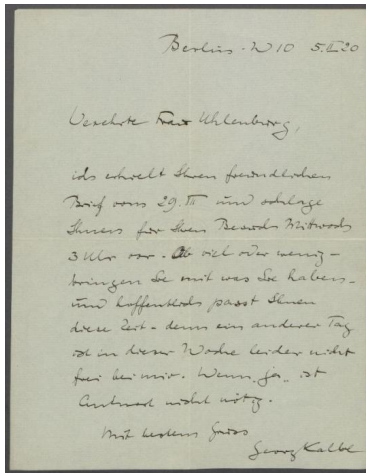 Berlin - W 10 5.II 20
Verehrte Frau Uhlenburg,
ich erhielt Ihren freundlichen
Brief vom 29. III und schlage
Ihnen für Ihren Besuch Mittwoch
3 Uhr vor. Ob viel oder wenig -
bringen Sie mit was Sie haben -
und hoffentlich passt Ihnen
diese Zeit - denn ein anderer Tag
ist in dieser Woche leider nicht
frei bei mir. Wenn "ja" ist
Antwort nicht nötig.
Mit bestem Gruss
Georg Kolbe